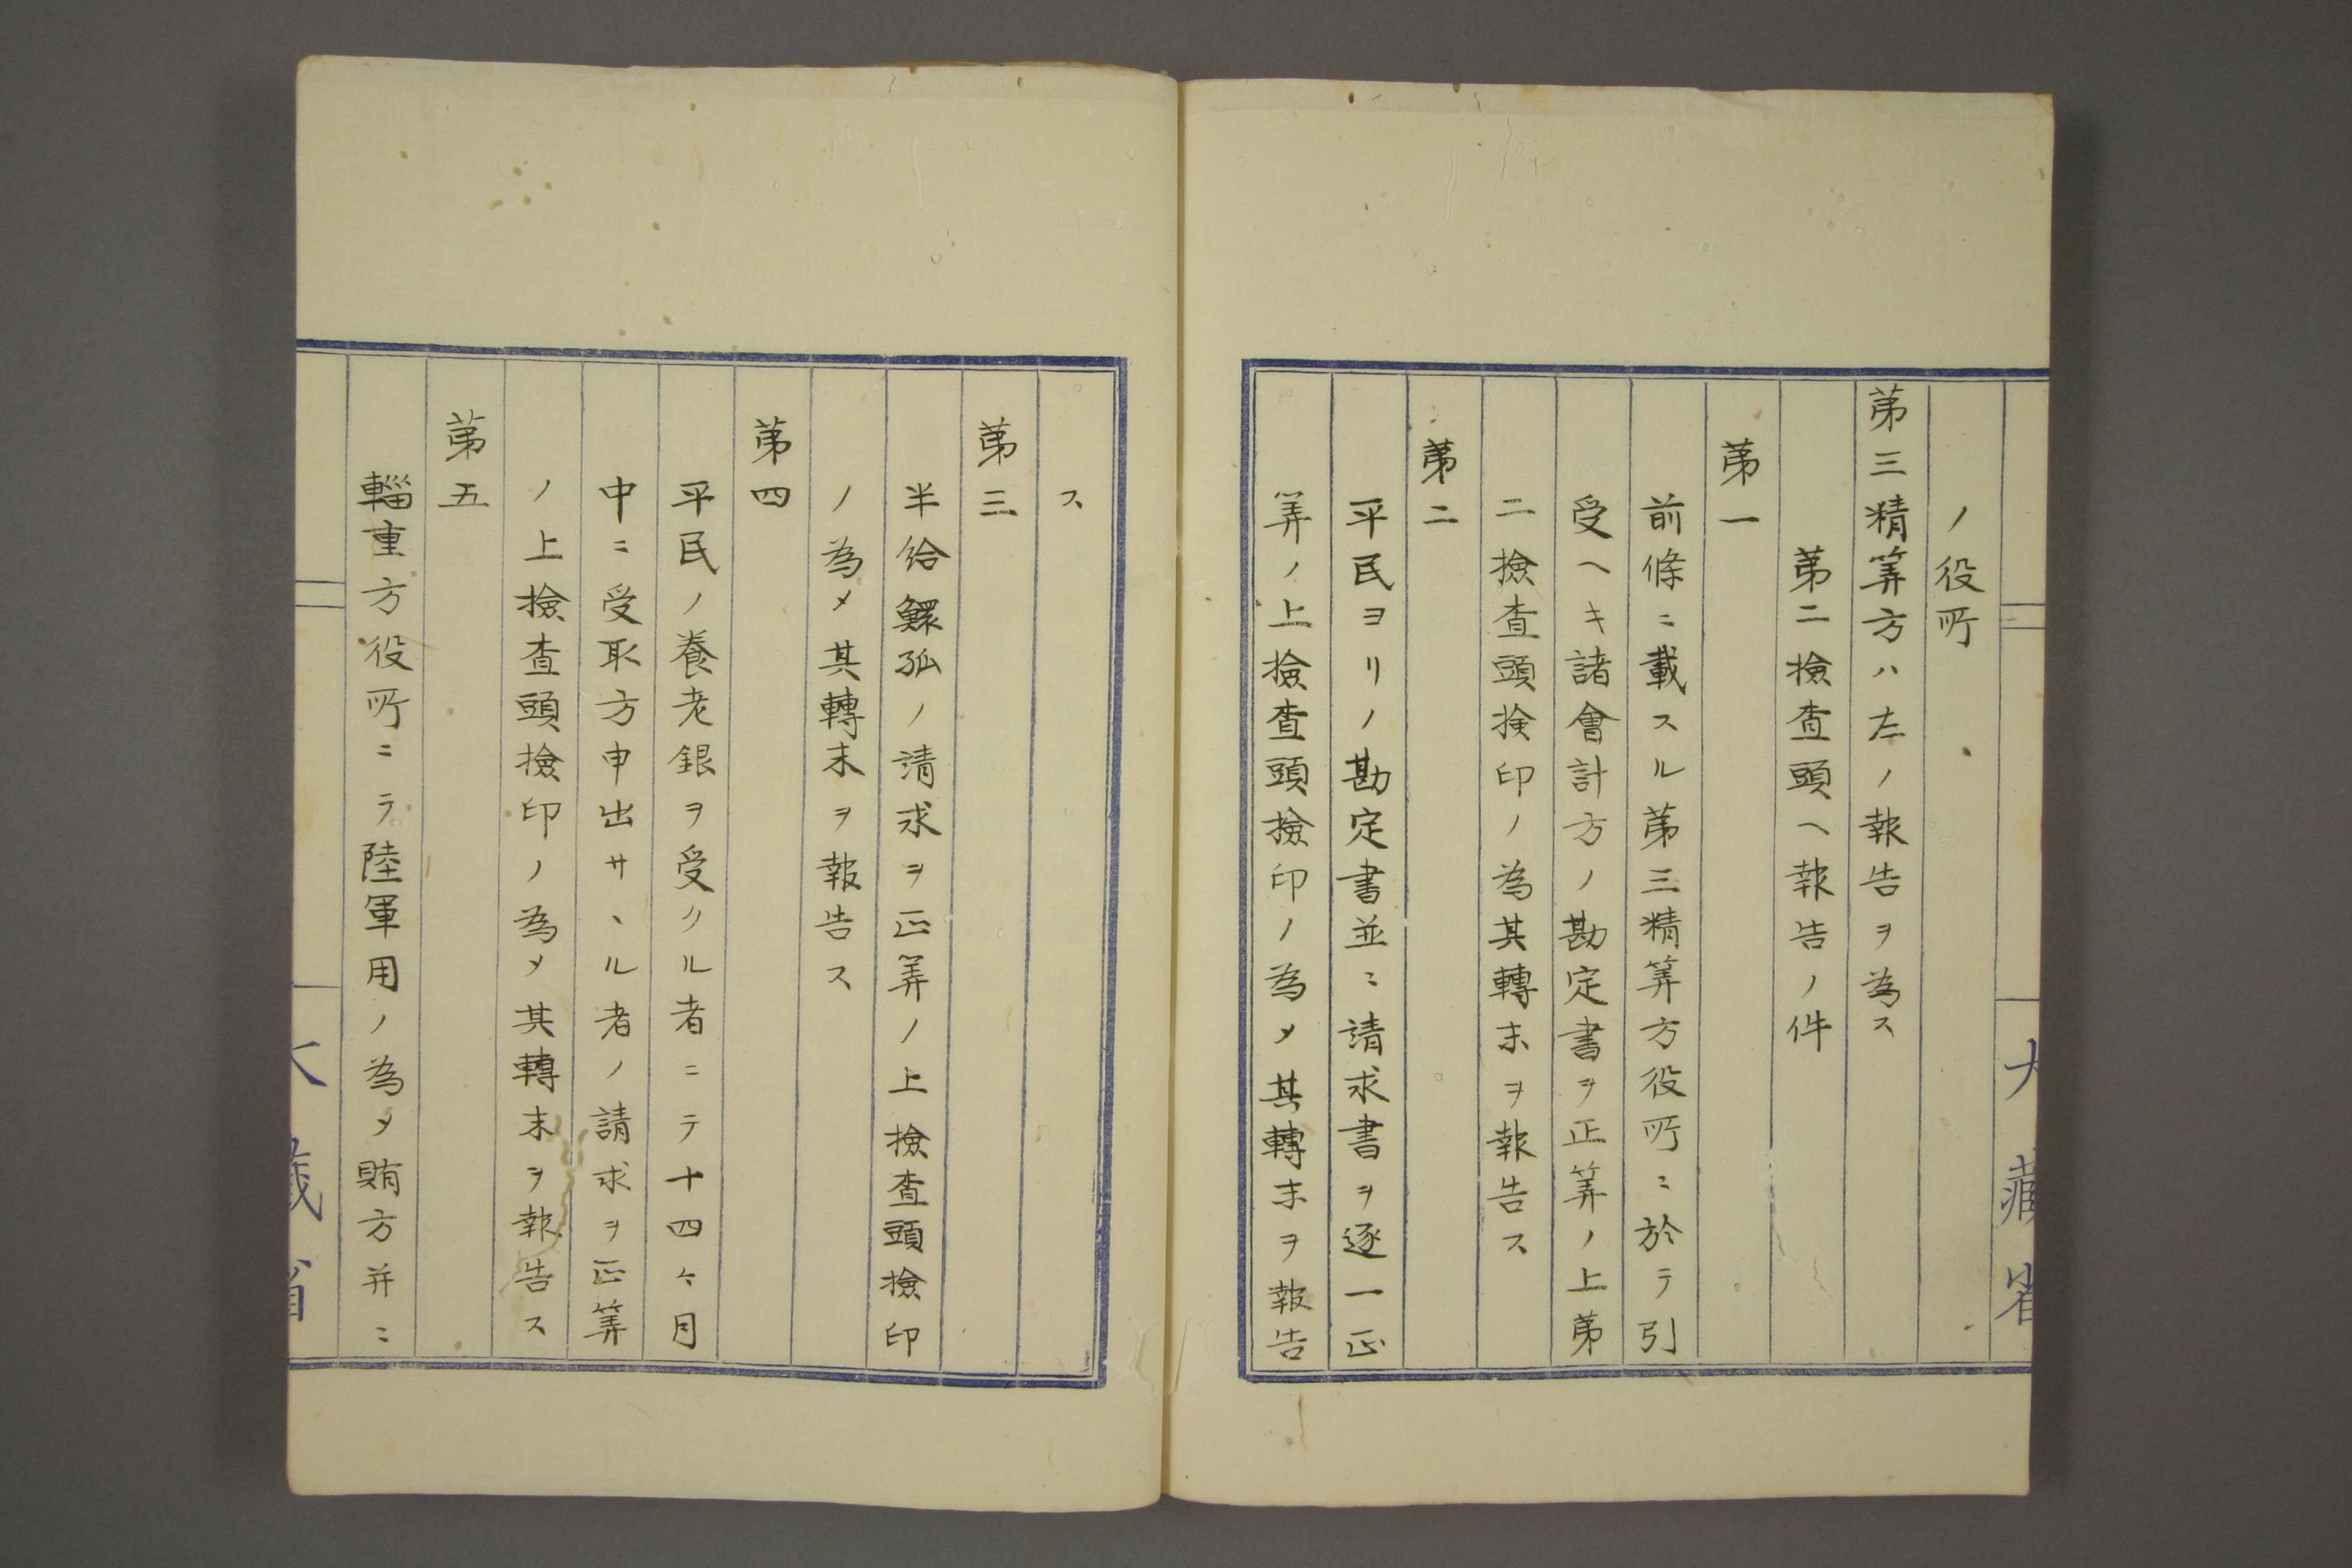 ノ役所
第三精筭方ハ左ノ報告ヲ為ス
第二撿查頭ヘ報告ノ件
第一
前條ニ載スル第三精筭方役所ニ於テ引
受ヘキ諸會計方ノ勘定書ヲ正筭ノ上第
二撿查頭検印ノ為其轉末ヲ報告ス
第二
平民ヨリノ勘定書並ニ請求書ヲ逐一正
筭ノ上撿查頭撿印ノ為メ其轉末ヲ報告
大藏省
ス
第三
半給鰥孤ノ請求ヲ正筭ノ上撿查頭撿印
ノ為メ其轉末ヲ報告ス
第四
平民ノ養老銀ヲ受クル者ニテ十四ケ月
中ニ受取方申出サヽル者ノ請求ヲ正筭
ノ上撿查頭撿印ノ為メ其轉末ヲ報告ス
第五
輜重方役所ニテ陸軍用ノ為メ賄方并ニ
大藏省